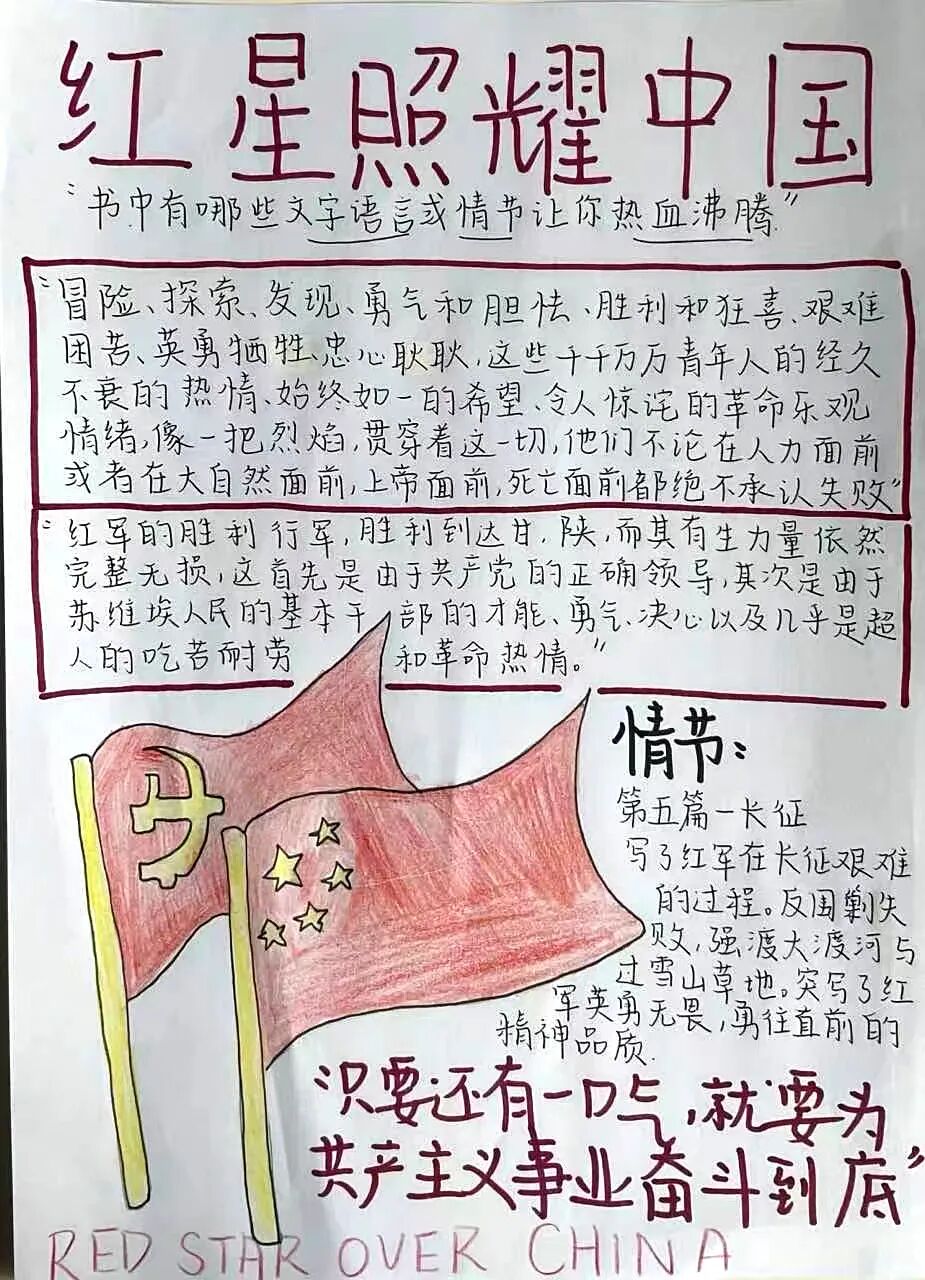 红星照耀中国
“书中有哪些文字语言或情节让你热血沸腾”
“冒险、探索、发现、勇气和胆怯、胜利和狂喜、艰难
困苦、英勇牺牲、忠心耿耿，这些千千万万青年人的经久
不衰的热情、始终如一的希望、令人惊诧的革命乐观
情绪，像一把烈焰，贯穿着这一切，他们不论在人力面前
或者在大自然面前，上帝面前，死亡面前都绝不承认失败”
“红军的胜利行军，胜利到达甘、陕，而其有生力量依然
完整无损，这首先是由于共产党的正确领导，其次是由于
苏维埃人民的基本干部的才能、勇气、决心以及几乎是超
人的吃苦耐劳和革命热情。”
情节：
第五篇一长征
写了红军在长征艰难
的过程。反围剿失
败，强渡大渡河与
过雪山草地。突写了红
军英勇无畏，勇往直前的
精神品质.
“只要还有一口气，就要为
共产主义事业奋斗到底”
RED STAR OVER CHINA